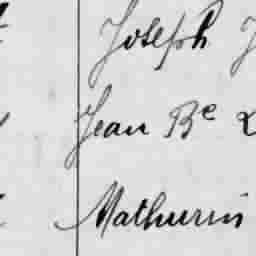 Joseph J
Jean Be L
Mathurin